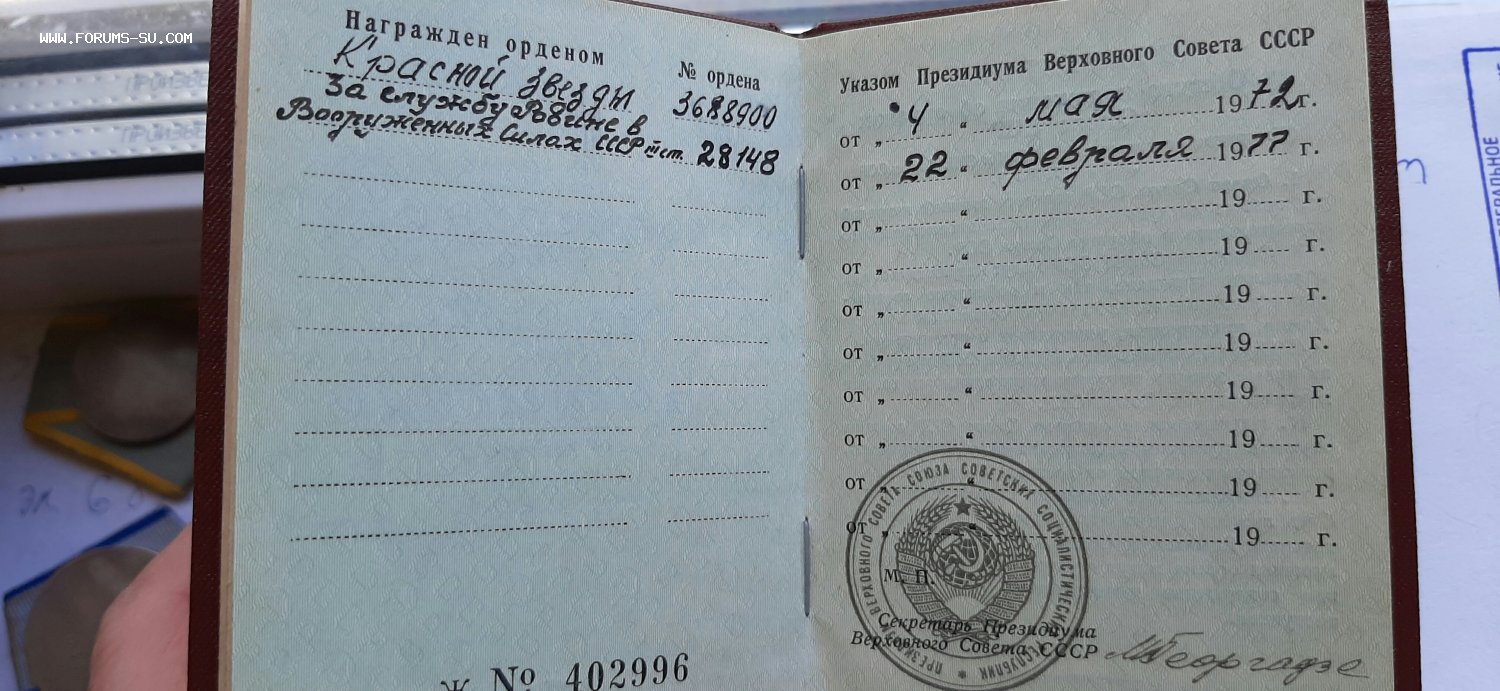 WWW.FORUMS-SU.COM
Награжден орденом № ордена
Красной Звезды 3688900
За службу Родине в
Вооруженных Силах СССР III ст. 28148
Ж № 402996
Указом Президиума Верховного Совета СССР
от „4“ мая 1972г.
от „22“ февраля 1977 г.
от „ “ 19 г.
от „ “ 19 г.
от „ “ 19 г.
от „ “ 19 г.
от „ “ 19 г.
от „ “ 19 г.
от „ “ 19 г.
от „ “ 19 г.
М. П.
Секретарь Президиума
Верховного Совета СССР
МГеоргадзе
ПРЕЗИДИУМ ВЕРХОВНОГО СОВЕТА СОЮЗА СОВЕТСКИХ СОЦИАЛИСТИЧЕСКИХ РЕСПУБЛИК